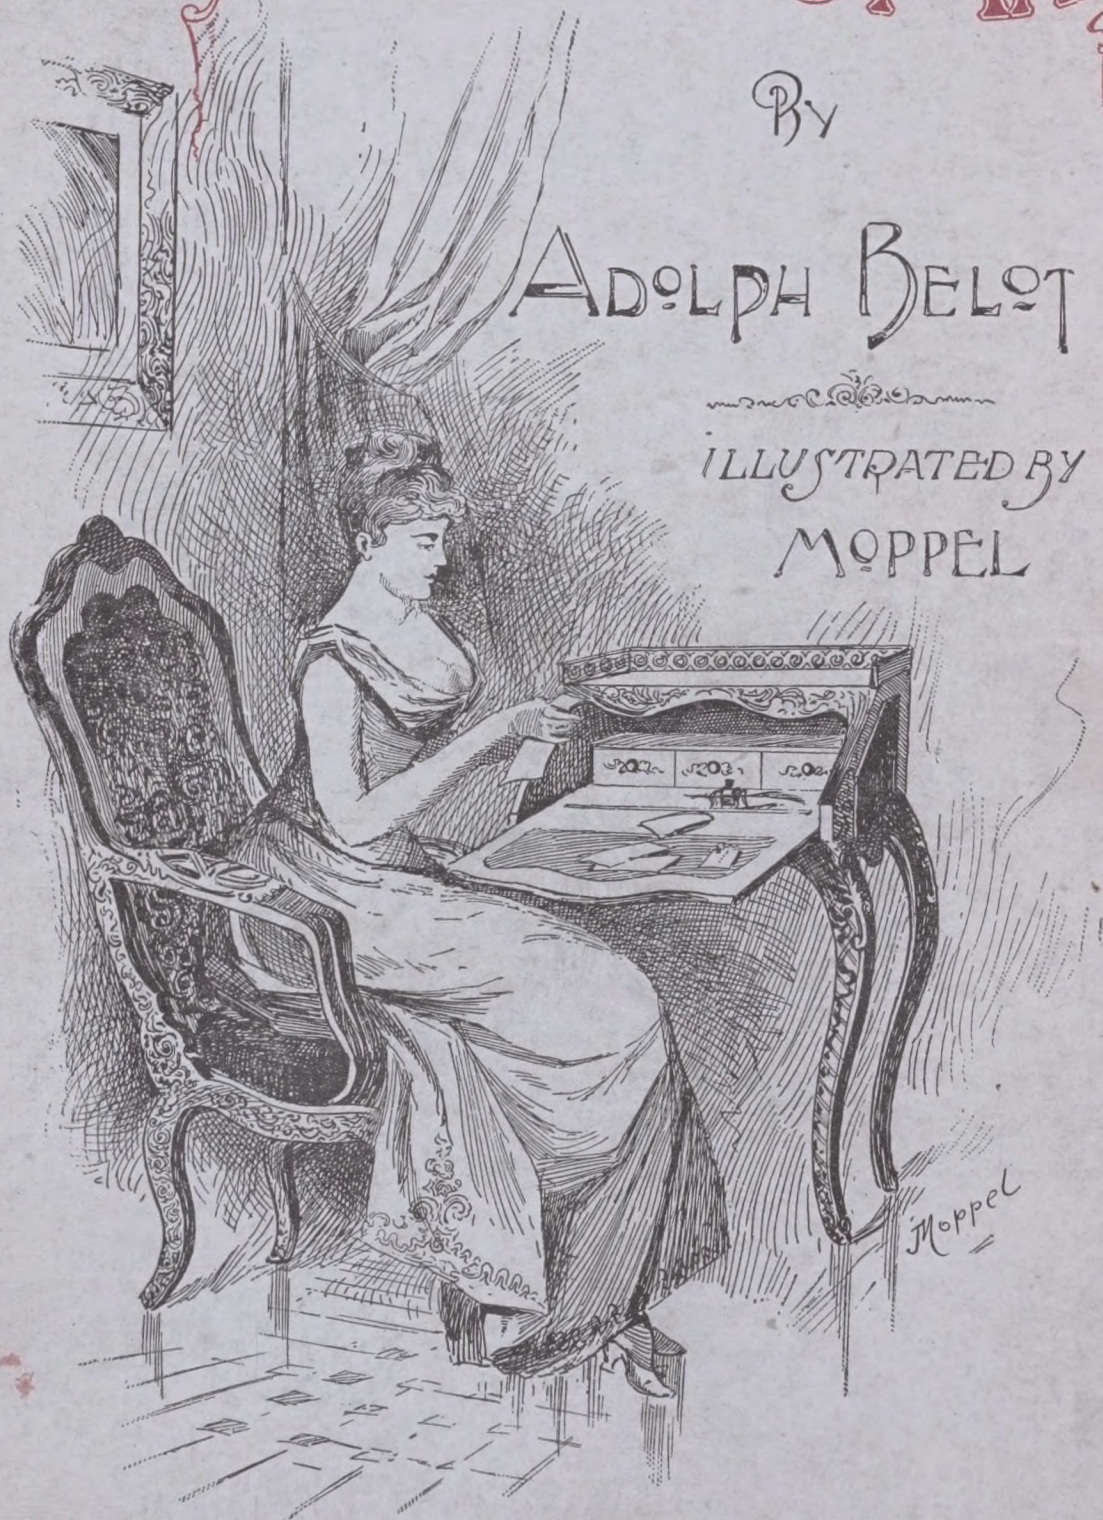 By
Adolph Belot
Illustrated by
Moppel
Moppel